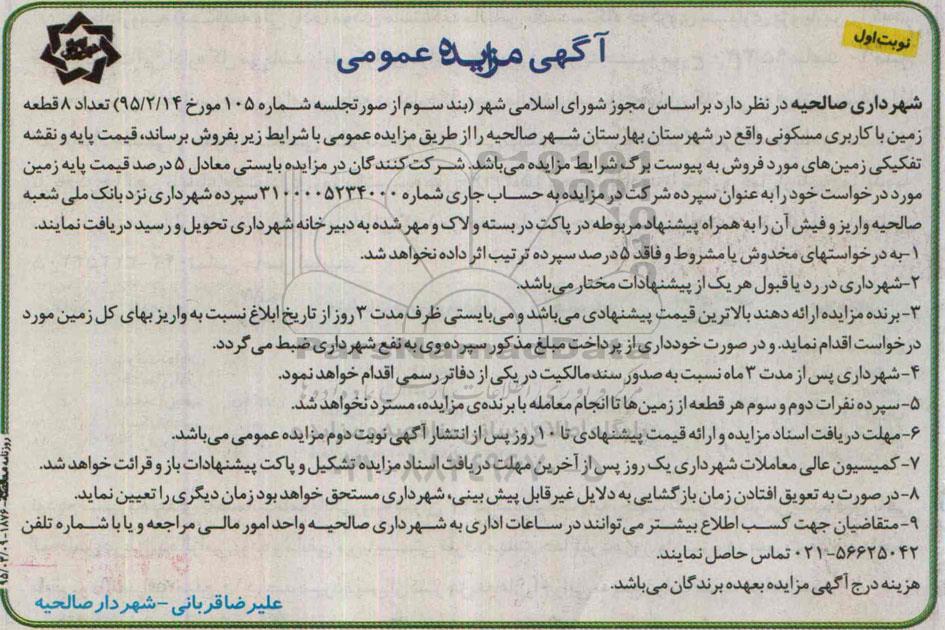 نوبت اول
آگهی مزایده عمومی
شهرداری صالحیه در نظر دارد براساس مجوز شورای اسلامی شهر (بند سوم از صورتجلسه شماره ۱۰۵ مورخ ۹۵/۲/۱۴) تعداد ۸ قطعه
زمین با کاربری مسکونی واقع در شهرستان بهارستان شهر صالحیه را از طریق مزایده عمومی با شرایط زیر بفروش برساند، قیمت پایه و نقشه
تفکیکی زمین‌های مورد فروش به پیوست برگ شرایط مزایده می‌باشد. شرکت کنندگان در مزایده بایستی معادل ۵ درصد قیمت پایه زمین
مورد درخواست خود را به عنوان سپرده شرکت در مزایده به حساب جاری شماره ۳۱۰۰۰۰۵۲۳۴۰۰۰ سپرده شهرداری نزد بانک ملی شعبه
صالحیه واریز و فیش آن را به همراه پیشنهاد مربوطه در پاکت در بسته و لاک و مهر شده به دبیرخانه شهرداری تحویل و رسید دریافت نمایند.
۱-به درخواستهای مخدوش یا مشروط و فاقد ۵ درصد سپرده ترتیب اثر داده نخواهد شد.
۲-شهرداری در رد یا قبول هر یک از پیشنهادات مختار می‌باشد.
۳-برنده مزایده ارائه دهند بالاترین قیمت پیشنهادی می‌باشد و می‌بایستی ظرف مدت ۳ روز از تاریخ ابلاغ نسبت به واریز بهای کل زمین مورد
درخواست اقدام نماید. و در صورت خودداری از پرداخت مبلغ مذکور سپرده وی به نفع شهرداری ضبط می گردد.
۴-شهرداری پس از مدت ۳ ماه نسبت به صدور سند مالکیت در یکی از دفاتر رسمی اقدام خواهد نمود.
۵-سپرده نفرات دوم و سوم هر قطعه از زمین‌ها تا انجام معامله با برنده‌ی مزایده، مسترد نخواهد شد.
۶-مهلت دریافت اسناد مزایده و ارائه قیمت پیشنهادی تا ۱۰ روز پس از انتشار آگهی نوبت دوم مزایده عمومی می‌باشد.
۷-کمیسیون عالی معاملات شهرداری یک روز پس از آخرین مهلت دریافت اسناد مزایده تشکیل و پاکت پیشنهادات باز و قرائت خواهد شد.
۸-در صورت به تعویق افتادن زمان بازگشایی به دلایل غیرقابل پیش بینی، شهرداری مستحق خواهد بود زمان دیگری را تعیین نماید.
۹-متقاضیان جهت کسب اطلاع بیشتر می‌توانند در ساعات اداری به شهرداری صالحیه واحد امور مالی مراجعه و یا با شماره تلفن
۰۲۱-۵۶۶۲۵۰۴۲ تماس حاصل نمایند.
هزینه درج آگهی مزایده بعهده برندگان می‌باشد.
علیرضا قربانی -شهردار صالحیه
ParsNamadData